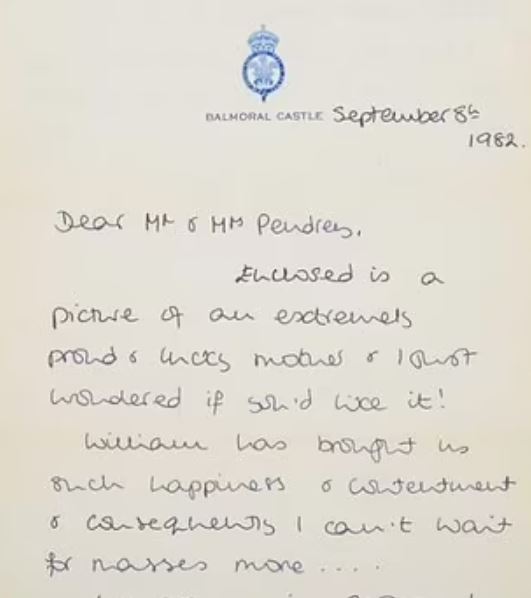 BALMORAL CASTLE September 8th
1982.
Dear Mr & Mrs Pendrey,
Enclosed is a
picture of an extremely
proud & lucky mother & I just
wondered if you'd like it!
William has brought us
such happiness & contentment
& consequently I can't wait
for masses more ....